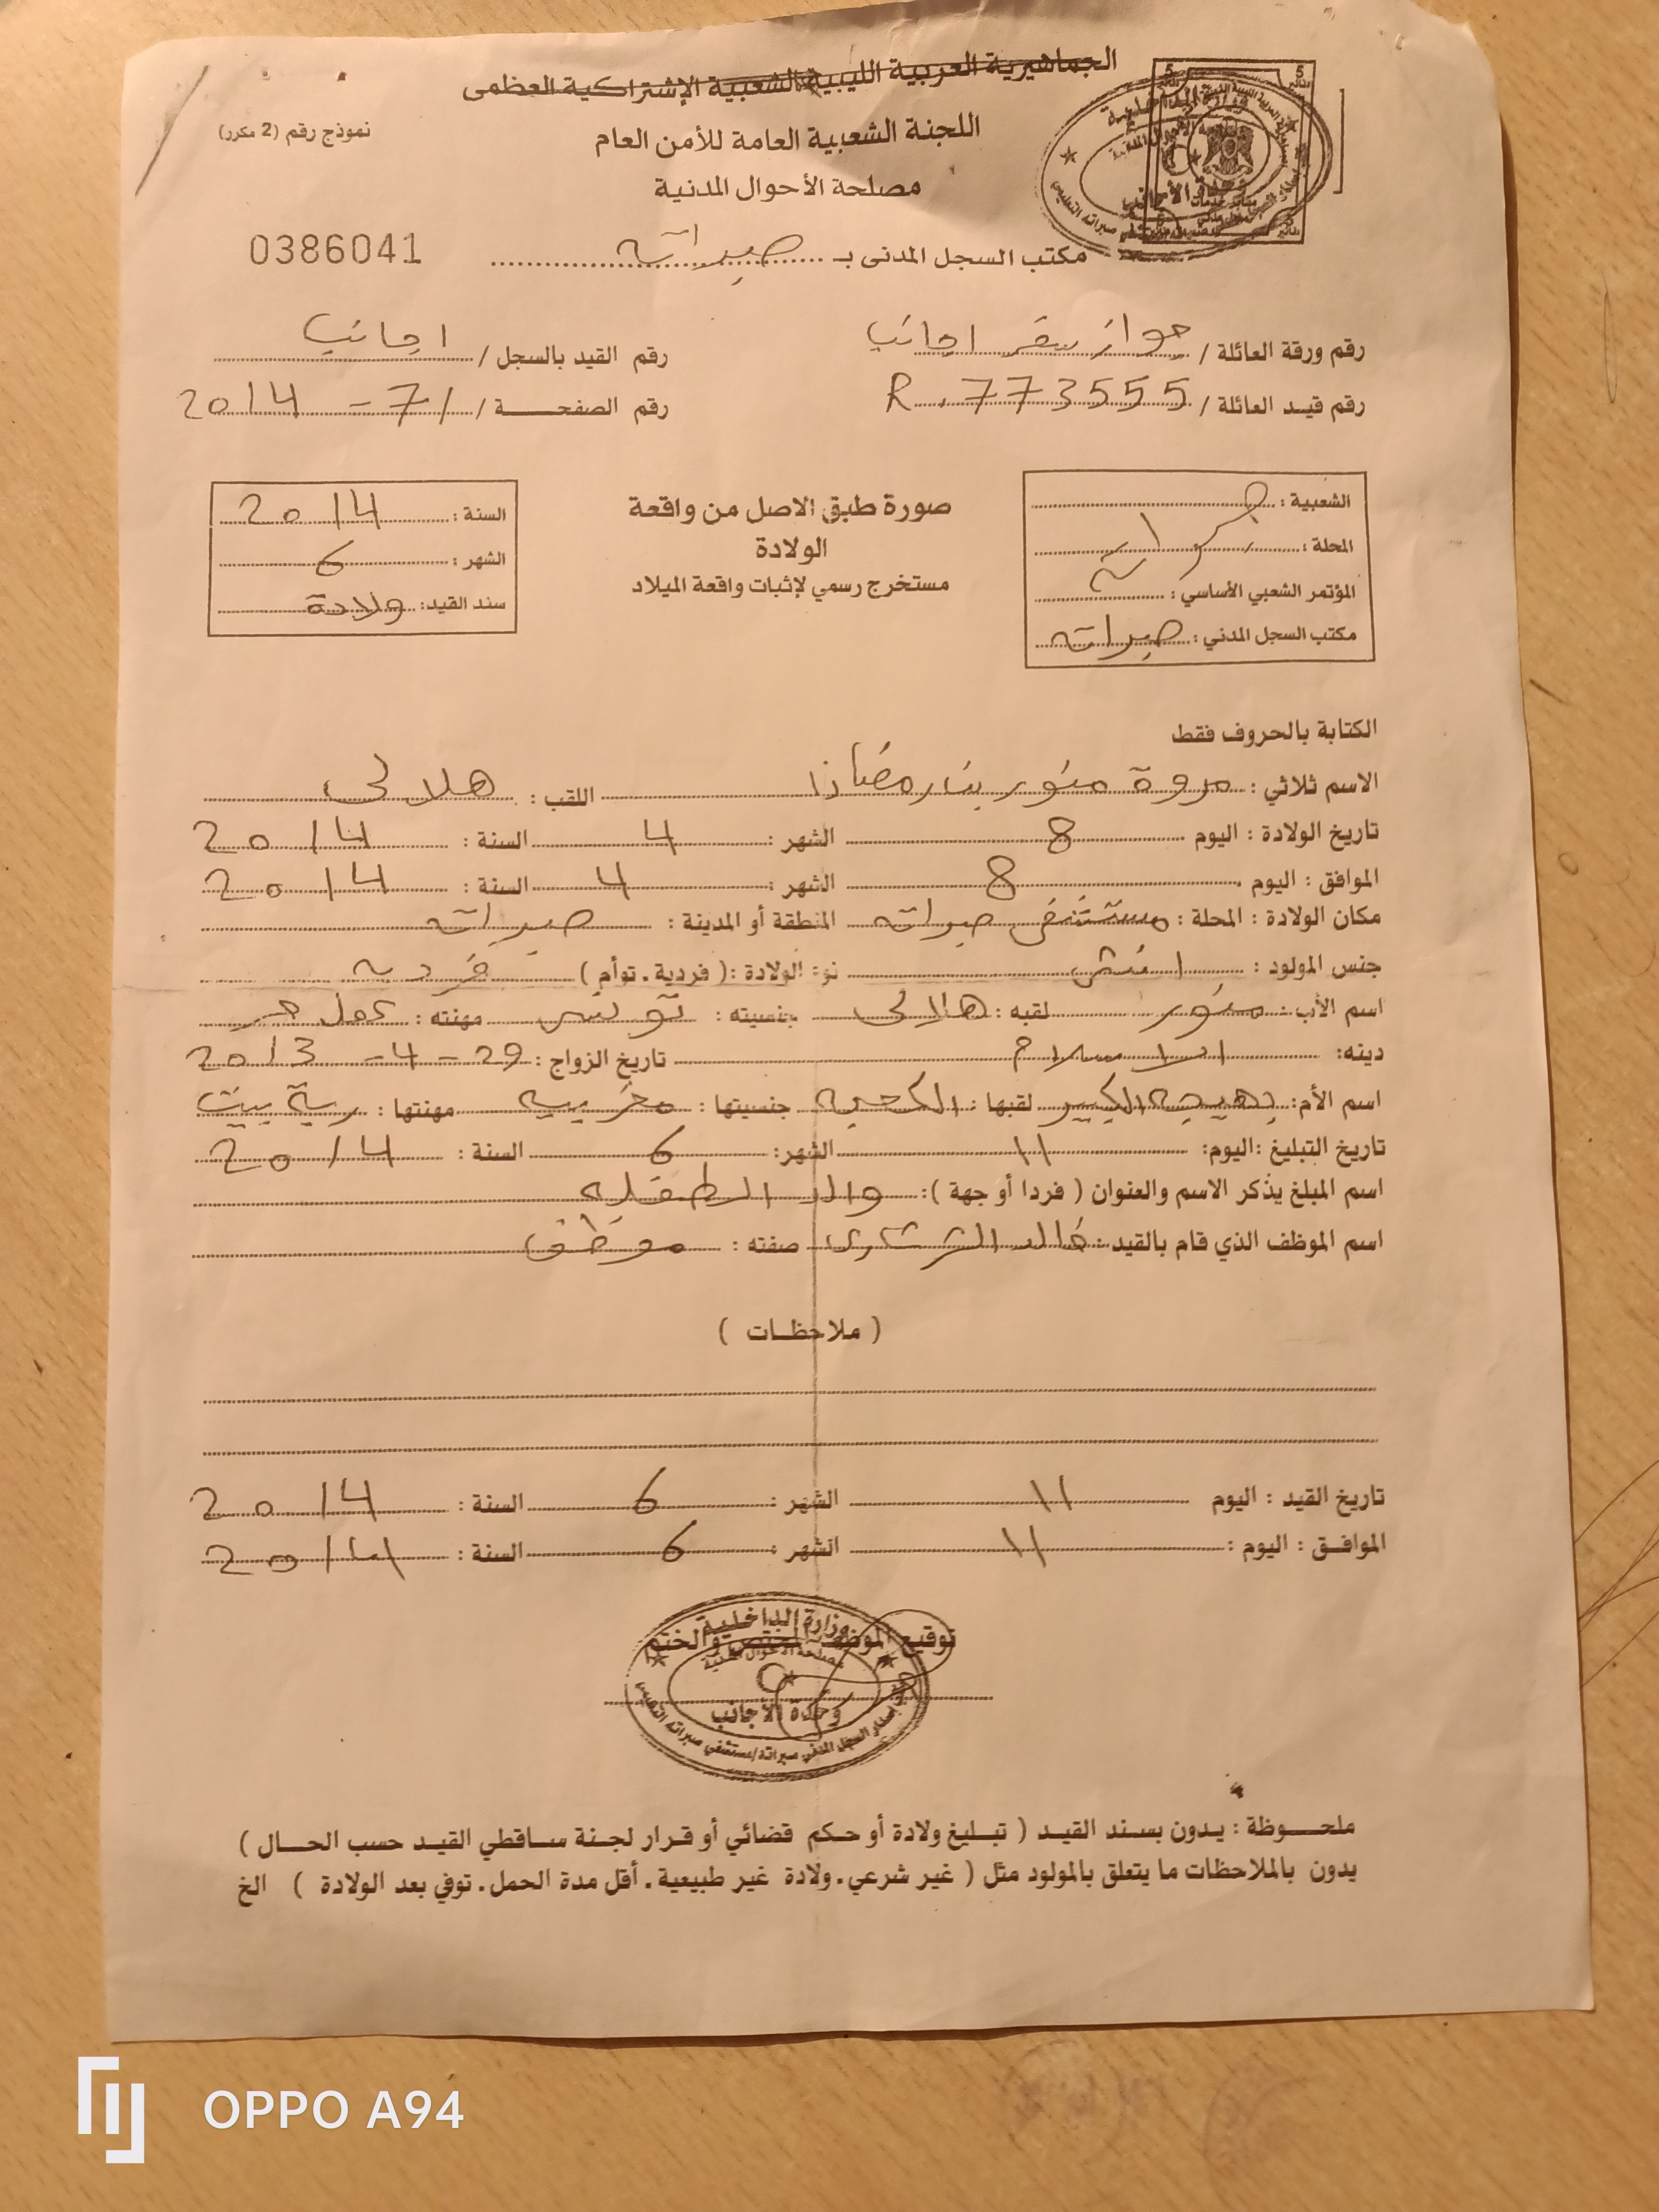 الجماهيرية العربية الليبية الشعبية الإشتراكية العظمى
نموذج رقم (2 مكرر)
اللجنة الشعبية العامة للأمن العام
مصلحة الأحوال المدنية
مكتب السجل المدنى بـ صبراته
0386041
رقم ورقة العائلة / جواز سفر اجانب رقم القيد بالسجل / اجانب
رقم قيد العائلة / R.773555 رقم الصفحة / 7/ - 2014
الشعبية :
المحلة :
المؤتمر الشعبي الأساسي :
مكتب السجل المدني : صبراته
صورة طبق الاصل من واقعة
الولادة
مستخرج رسمي لإثبات واقعة الميلاد
السنة : 2014
الشهر : 6
سند القيد : ولادة
الكتابة بالحروف فقط
الاسم ثلاثي : مروة منور بن رمضان اللقب : هلالى
تاريخ الولادة : اليوم 8 الشهر : 4 السنة : 2014
الموافق : اليوم 8 الشهر : 4 السنة : 2014
مكان الولادة : المحلة : مستشفى صبراته المنطقة أو المدينة : صبراته
جنس المولود : انثى نوع الولادة : ( فردية . توأم ) فرديه
اسم الأب : منور لقبه : هلالى جنسيته : تونسى مهنته : عمل حر
دينه : الاسلام تاريخ الزواج : 29 - 4 - 2013
اسم الأم : بهيجه الكبير لقبها : جنسيتها : مغربيه مهنتها : ربة بيت
تاريخ التبليغ : اليوم : 11 الشهر : 6 السنة : 2014
اسم المبلغ يذكر الاسم والعنوان ( فردا أو جهة ) : والد الطفله
اسم الموظف الذي قام بالقيد : خالد صفته : موظف
( ملاحظات )
تاريخ القيد : اليوم 11 الشهر : 6 السنة : 2014
الموافق : اليوم : 11 الشهر : 6 السنة : 2014
توقيع الموظف المختص والختم
وزارة الداخلية
مصلحة الأحوال المدنية
وحدة الأجانب
إصدار السجل المدني صبراته/مستشفي صبراته التعليمي
ملحوظة : يدون بسند القيد ( تبليغ ولادة أو حكم قضائي أو قرار لجنة ساقطي القيد حسب الحال )
يدون بالملاحظات ما يتعلق بالمولود مثل ( غير شرعي . ولادة غير طبيعية . أقل مدة الحمل . توفي بعد الولادة ) الخ
OPPO A94